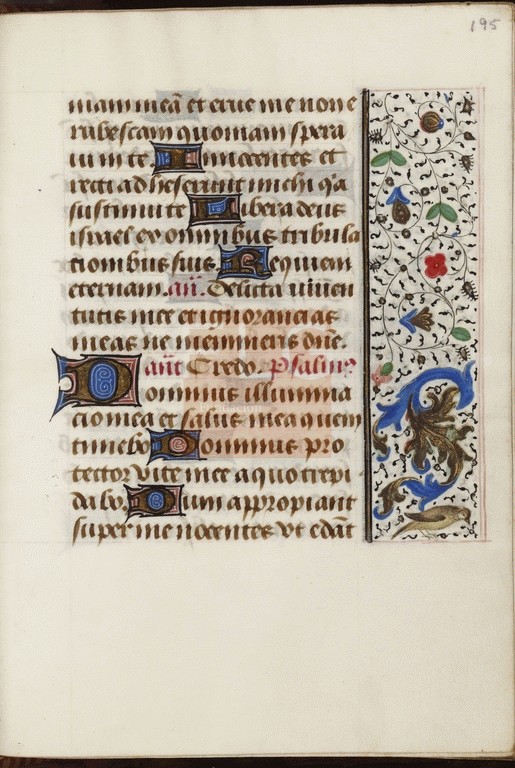 195
mam meā et erue me non e
rubescam quoniam spera
ui in te. Innocentes et
recti adheserunt michi q̄a
sustinui te Libera deus
israel ex omnibus tribula
tionibus suis. Requiem
eternam. añ. Delicta iuuen
tutis mee et ignorancias
meas ne memineris dñe.
ant̄ Credo. Psalmꝰ
Dominus illumina
cio mea et salus mea quem
timebo Dominus pro
tector vite mee a quo trepi
dabo. Dum appropiant
super me nocentes vt edāt